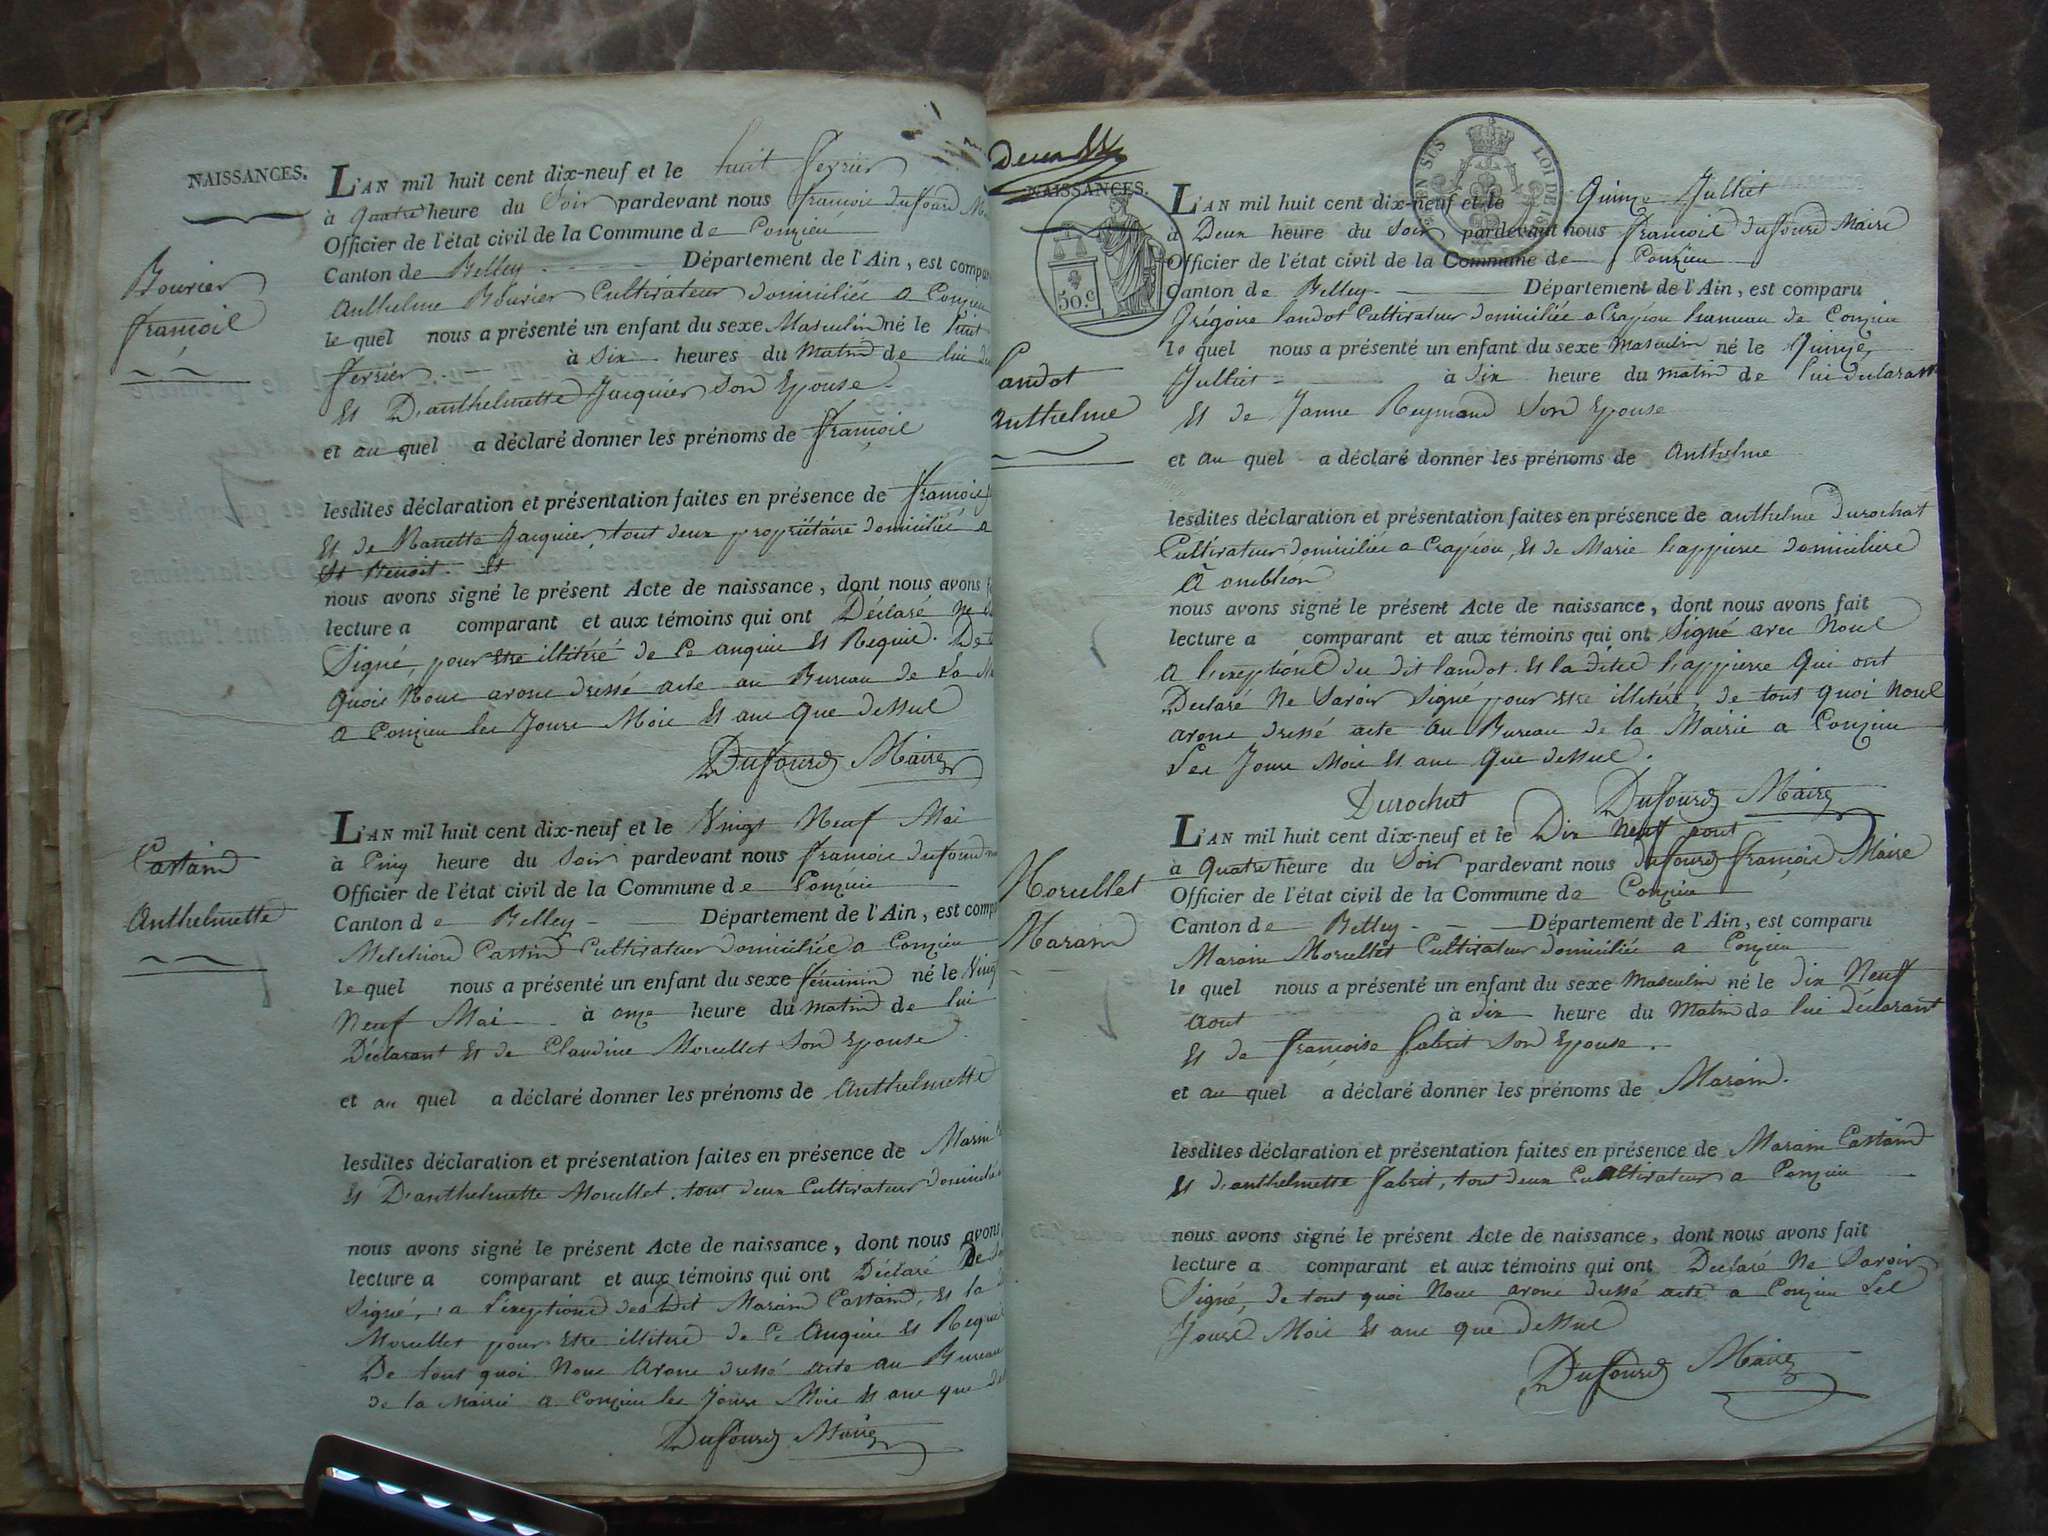 NAISSANCES.
L'AN mil huit cent dix-neuf et le huit fevrier
à quatre heure du Soir pardevant nous francois dufourd
Officier de l'état civil de la Commune de Conzieu
Canton de Belley Département de l'Ain, est compa
anthelme Bouvier Cultivateur domiciliée a Conzieu
Bouvier
francois
le quel nous a présenté un enfant du sexe Masculin né le huit
fevrier à Six heures du Matin de lui
Et D'anthelmette Jacquier Son Epouse
et au quel a déclaré donner les prénoms de francois
lesdites déclaration et présentation faites en présence de francois
Et de Nanette Jacquier, tout deux propriétaire domiciliée a
St Benoit. Et
nous avons signé le présent Acte de naissance, dont nous avons
lecture a comparant et aux témoins qui ont Déclaré ne
Signé pour Etre illitéré de Ce anquie Et Requie. De
quoi Nous avons dressé acte au Bureau de La
a Conzieu les Jours Mois Et ans que dessus
Dufourd Maire
L'AN mil huit cent dix-neuf et le Vingt Neuf Mai
à Cinq heure du Soir pardevant nous francois dufourd
Castaind
Officier de l'état civil de la Commune de Conzieu
Anthelmette
Canton de Belley Département de l'Ain, est comp
Melchiord Castind Cultivateur domiciliée a Conzieu
le quel nous a présenté un enfant du sexe féminin né le Vingt
Neuf Mai à onze heure du Matin de lui
Déclarant Et de Claudine Morcellet Son Epouse
et au quel a déclaré donner les prénoms de Anthelmette
lesdites déclaration et présentation faites en présence de Marin
Et D'anthelmette Morcellet, tout deux Cultivateur domicilé
nous avons signé le présent Acte de naissance, dont nous avons
lecture a comparant et aux témoins qui ont Déclaré De
Signé, a l'exeptiond des dit Maraind Castaind, Et la
Morcellet pour Etre illitere de Ce Anquie Et Requie
De tout quoi Nous Avons dressé acte au Bureau
de la Mairie a Conzieu les Jours Mois Et ans que
Dufourd Maire
Deux
NAISSANCES.
50.C
LOI DE 18
L'AN mil huit cent dix-neuf et le Quinze Julliet
à Deux heure du Soir pardevant nous francois dufourd Maire
Officier de l'état civil de la Commune de Conzieu
Canton de Belley Département de l'Ain, est comparu
Grégoire Landot Cultivateur domiciliée a Crapéou hameau de Conzieu
Landot
Anthelme
le quel nous a présenté un enfant du sexe Masculin né le Quinze
Julliet à Six heure du Matin de lui declarant
Et de Janne Reymond Son Epouse
et au quel a déclaré donner les prénoms de Anthelme
lesdites déclaration et présentation faites en présence de anthelme Durochat
Cultivateur domiciliée a Crapéou, Et de Marie Lappierre domiciliere
A ambléon
nous avons signé le présent Acte de naissance, dont nous avons fait
lecture a comparant et aux témoins qui ont Signé avec Nous
A l'exeptions du dit landot Et la dites Lappierre Qui ont
Declaré Ne Savoir Signé pour Etre illitéré, de tout quoi Nous
avons dressé acte Au Bureau de la Mairie a Conzieu
Les Jours Mois Et ans Que dessus.
Durochat Dufourd Maire
L'AN mil huit cent dix-neuf et le Dix Neuf aout
à Quatre heure du Soir pardevant nous dufourd francois Maire
Morcellet
Officier de l'état civil de la Commune de Conzieu
Maraind
Canton de Belley Département de l'Ain, est comparu
Marain Morcellet Cultivateur domiciliée a Conzieu
le quel nous a présenté un enfant du sexe Masculin né le dix Neuf
Aout à dix heure du Matin de lui Déclarant
Et de françoise fabret Son Epouse.
et au quel a déclaré donner les prénoms de Maraind.
lesdites déclaration et présentation faites en présence de Marain Castaind
Et d'anthelmette fabret, tout deux Cultivateur a Conzieu
nous avons signé le présent Acte de naissance, dont nous avons fait
lecture a comparant et aux témoins qui ont Declaré Ne Savoir
Signé, de tout quoi Nous avons dressé acte a Conzieu Les
Jours Mois Et ans que dessus
Dufourd Maire